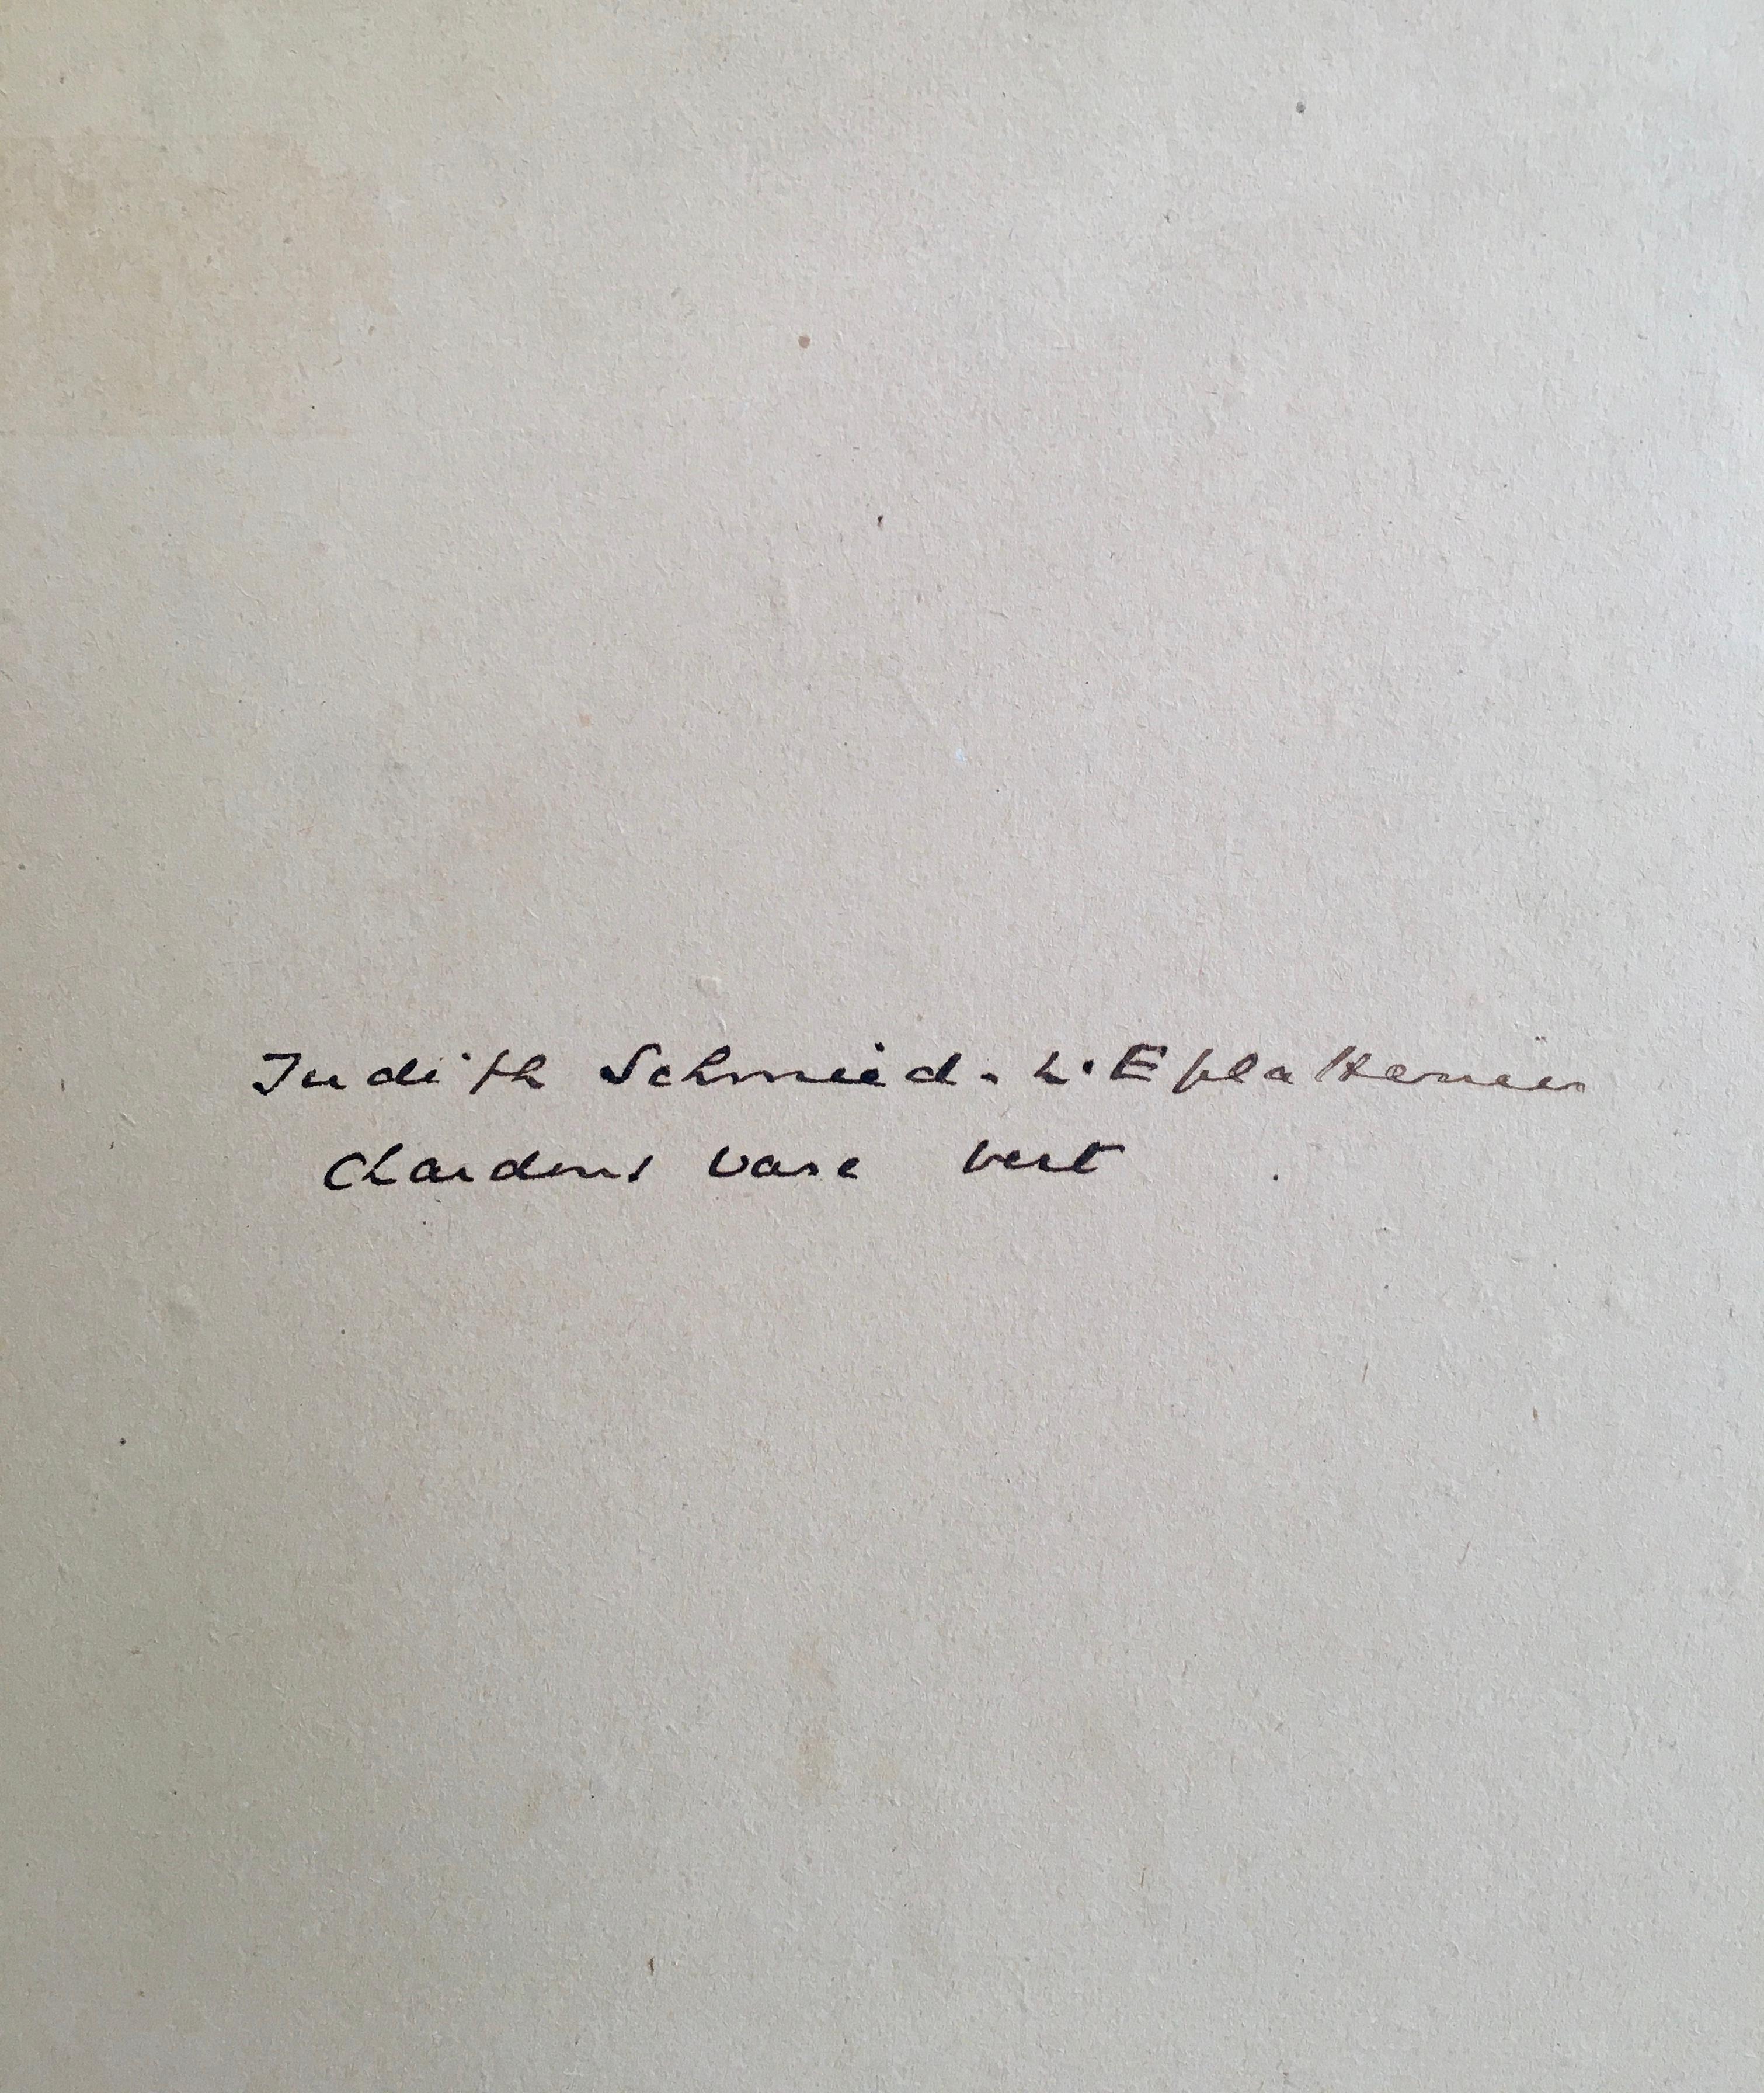 Judith Schmied-L'Eplattenier
Chardons vase vert